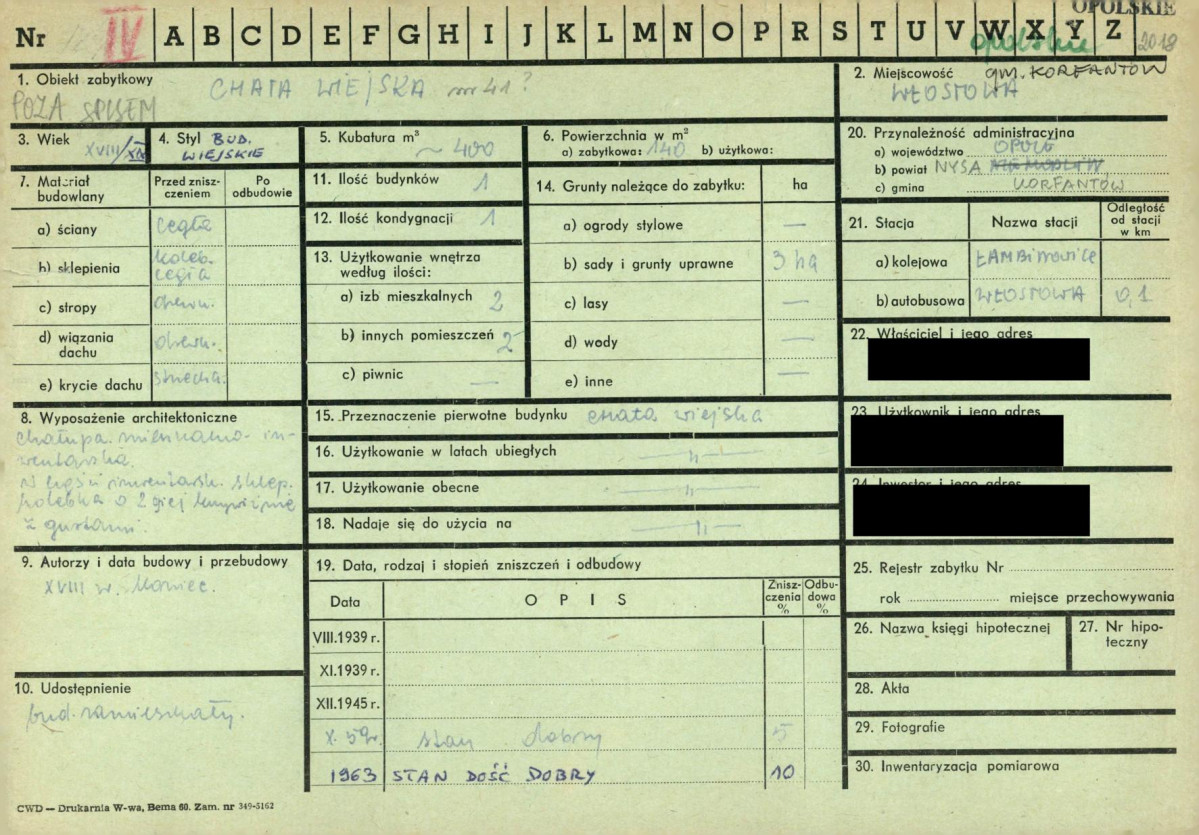 OPOLSKIE
Nr IV A B C D E F G H I J K L M N O P R S T U V W X Y Z
opolskie 2018
1. Obiekt zabytkowy CHATA WIEJSKA nr 41?
POZA SPISEM
2. Miejscowość gm. KORFANTÓW
WŁOSTOWA
3. Wiek XVIII/XIX
4. Styl BUD. WIEJSKIE
5. Kubatura m³
~ 400
6. Powierzchnia w m²
a) zabytkowa: 140 b) użytkowa:
7. Materiał budowlany
Przed zniszczeniem
Po odbudowie
a) ściany cegła
b) sklepienia koleb. cegła
c) stropy drewn.
d) wiązania dachu drewn.
e) krycie dachu strzecha.
8. Wyposażenie architektoniczne
chałupa mieszkalno-in-
wentarska.
W części inwentarsk. sklep.
kolebka o 2 giej
z gurtami.
9. Autorzy i data budowy i przebudowy
XVIII w. koniec.
10. Udostępnienie
bud. zamieszkały.
11. Ilość budynków 1
12. Ilość kondygnacji 1
13. Użytkowanie wnętrza
według ilości:
a) izb mieszkalnych 2
b) innych pomieszczeń 2
c) piwnic —
14. Grunty należące do zabytku: ha
a) ogrody stylowe —
b) sady i grunty uprawne 3 ha
c) lasy —
d) wody —
e) inne
15. Przeznaczenie pierwotne budynku chata wiejska
16. Użytkowanie w latach ubiegłych — " —
17. Użytkowanie obecne — " —
18. Nadaje się do użycia na — " —
19. Data, rodzaj i stopień zniszczeń i odbudowy
Data OPIS Zniszczenia % Odbudowa %
VIII.1939 r.
XI.1939 r.
XII.1945 r.
X. 59r. stan dobry 5
1963 STAN DOŚĆ DOBRY 10
20. Przynależność administracyjna
a) województwo OPOLE
b) powiat NYSA NIEMODLIN
c) gmina KORFANTÓW
21. Stacja Nazwa stacji Odległość od stacji w km
a) kolejowa ŁAMBINOWICE
b) autobusowa WŁOSTOWA 0,1
22. Właściciel i jego adres
23. Użytkownik i jego adres
24. Inwestor i jego adres
25. Rejestr zabytku Nr
rok miejsce przechowywania
26. Nazwa księgi hipotecznej
27. Nr hipo-
teczny
28. Akta
29. Fotografie
30. Inwentaryzacja pomiarowa
CWD — Drukarnia W-wa, Bema 60. Zam. nr 349-5162